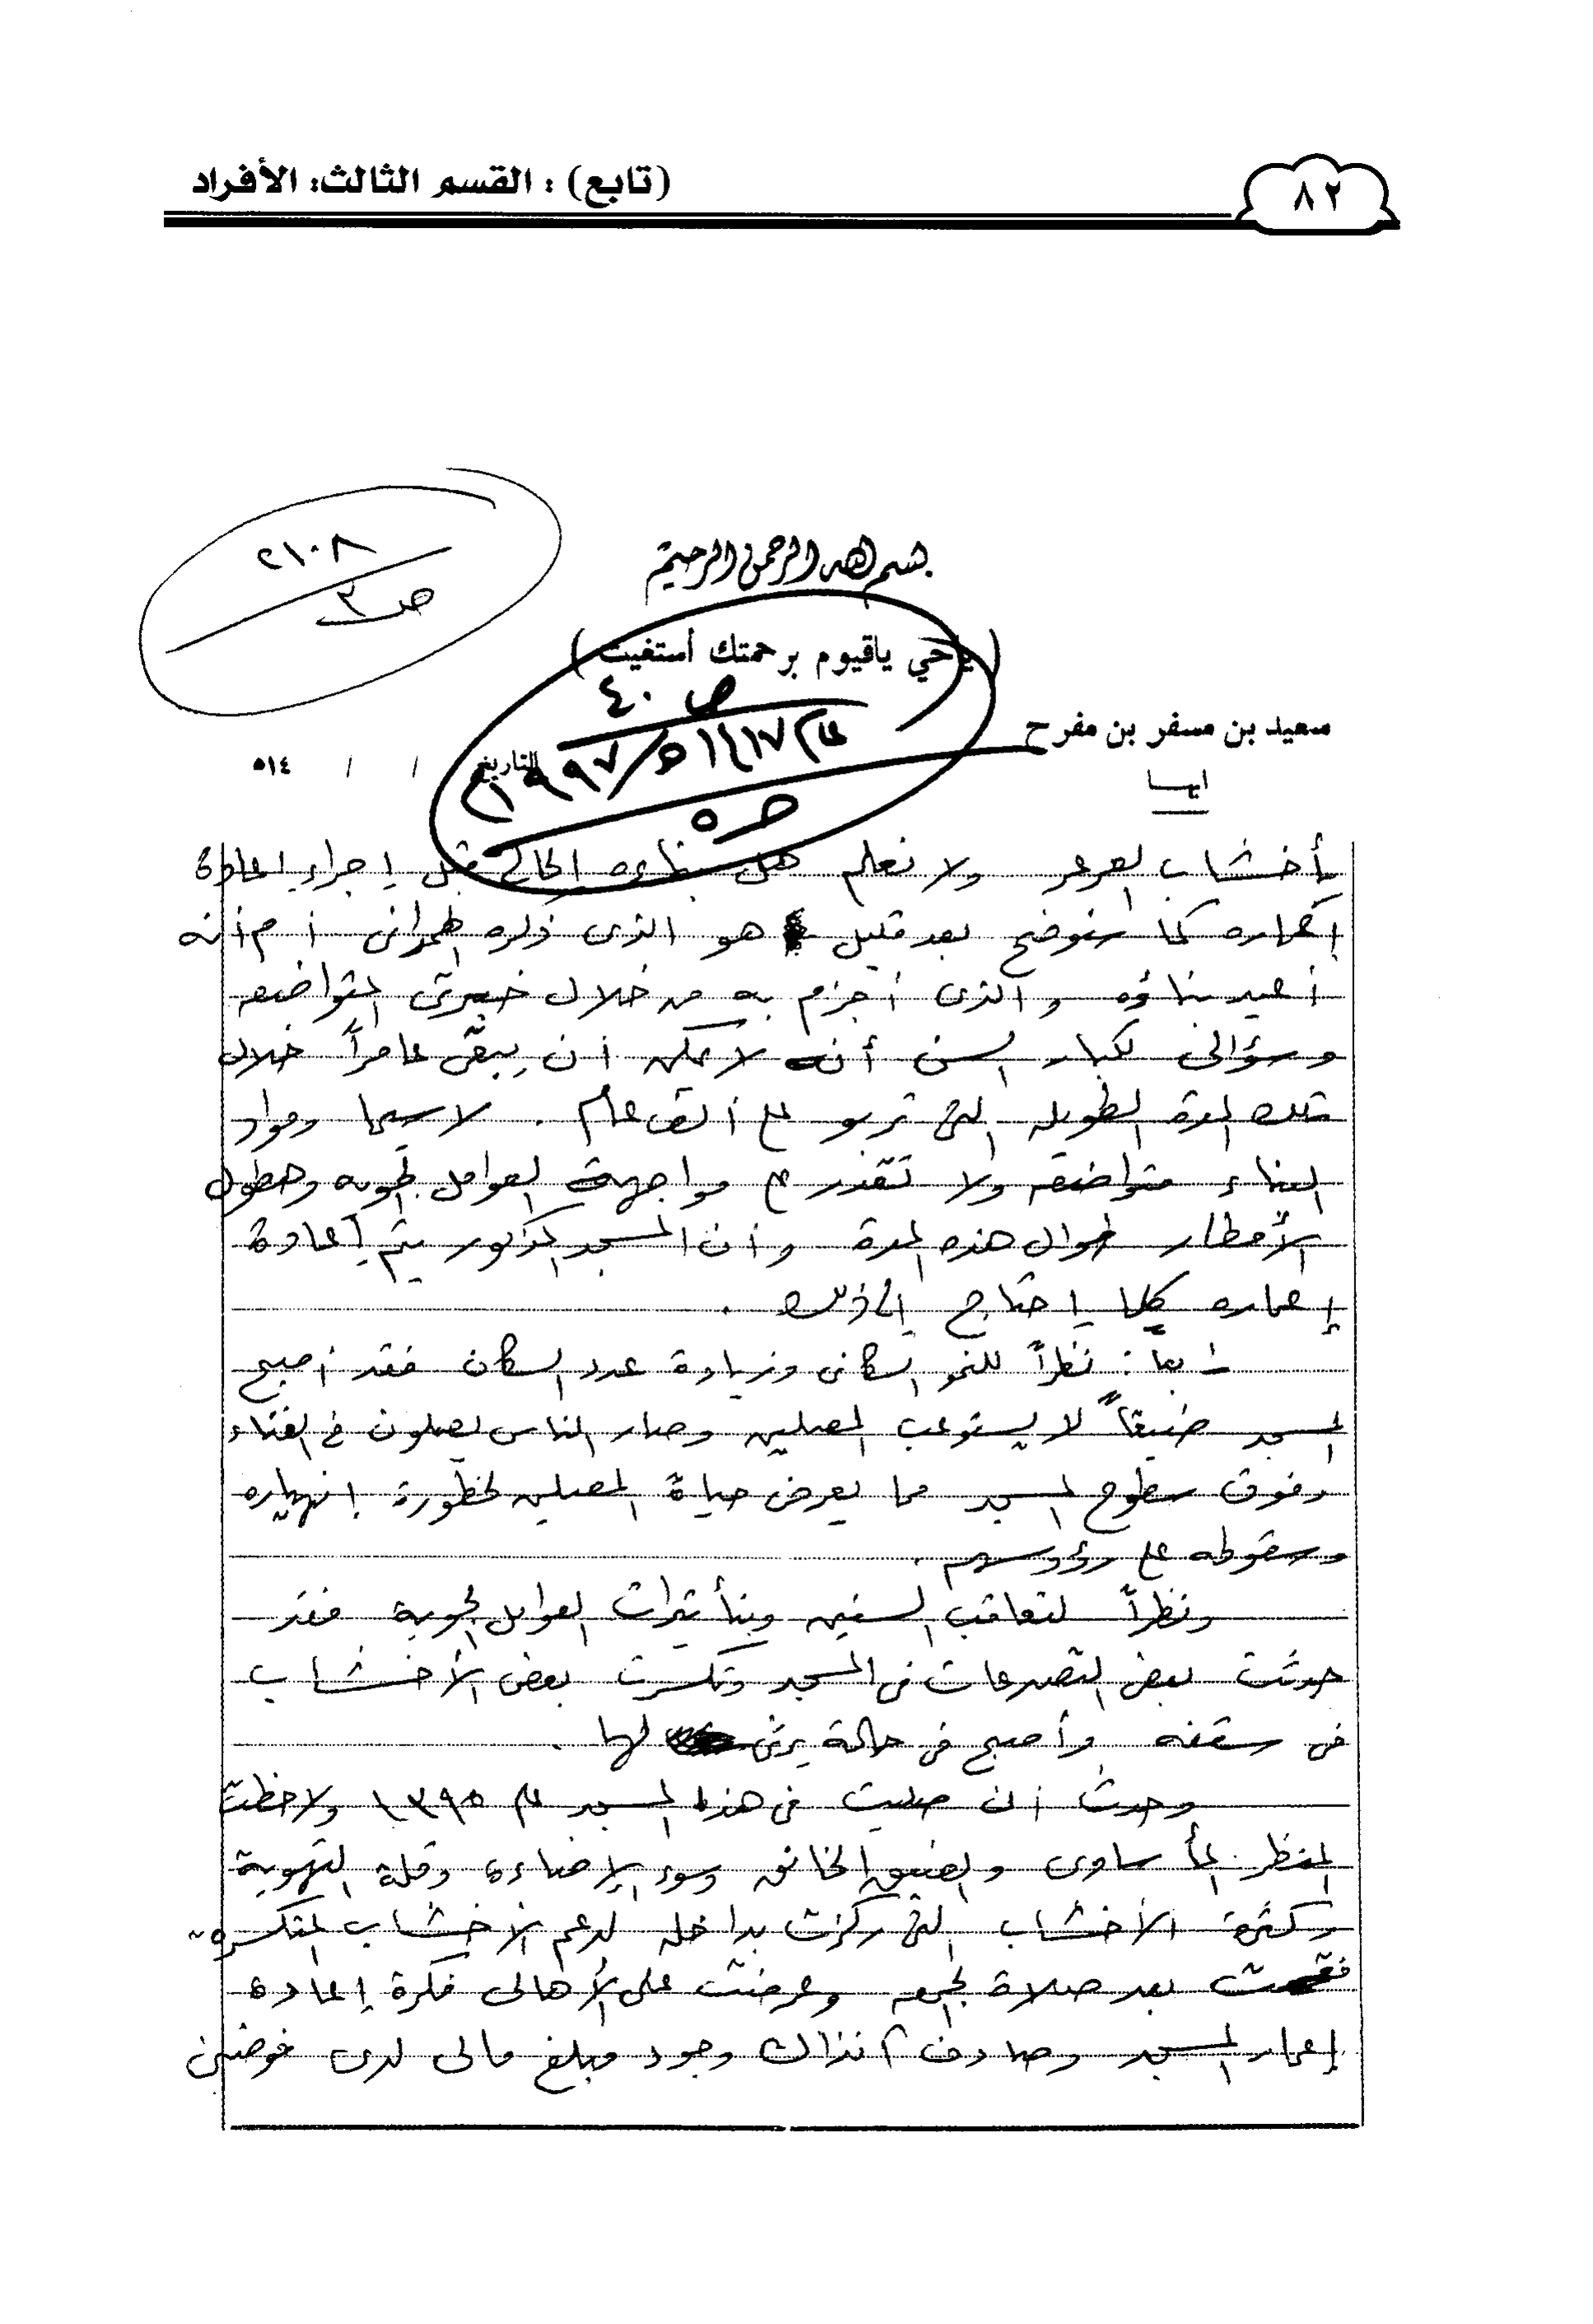 ٨٢
(تابع) : القسم الثالث: الأفراد
٢١٠٨
ص ٣
بسم الله الرحمن الرحيم
(ياحي ياقيوم برحمتك أستغيث)
ص ٤٠
عام ١٤١٧هـ/١٩٩٧م
ص ٥
سعيد بن مسفر بن مفرح
ابها
التاريخ / / ١٤هـ
بأخشاب العرعر ولا نعلم هل بناءه الحالي قبل إجراء إعادة
إعماره كما سنوضح بعد قليل هو الذى ذكره الهمدانى أم أنه
أعيد بناؤه والذى أجزم به من خلال خبرتى المتواضعه
وسؤالى لكبار السن أنه لا يمكن أن يبقى عامراً خلال
تلك المدة الطويله التى تربو على ألف عام . لا سيما ومواد
البناء متواضعه ولا تقدر على مواجهة العوامل الجويه وهطول
الأمطار طوال هذه المدة وأن المسجد المذكور يتم إعادة
إعماره كلما احتاج إلى ذلك .
رابعاً : نظراً للنمو السكانى وزيادة عدد السكان فقد أصبح
المسجد ضيقاً لا يستوعب المصلين وصار الناس يصلون في الفناء
وفوق سطوح المسجد مما يعرض حياة المصلين لخطورة انهياره
وسقوطه على رؤوسهم .
ونظراً لتعاقب السنين وبتأثيرات العوامل الجوية فقد
حدثت بعض التصدعات فى المسجد وتكسرت بعض الأخشاب
فى سقفه وأصبح فى حالة يرثى لها .
وحدث أن صليت فى هذا المسجد عام ١٣٩٥ ولاحظت
المنظر المأساوى والضيق الخانق وسوء الإضاءة وقلة التهوية
وكثرة الأخشاب التى ركزت بداخله لدعم الأخشاب المتكسرة
فقمت بعد صلاة الجمعه وعرضت على الأهالى فكرة إعادة
إعمار المسجد وصادف آنذاك وجود مبلغ مالى لدى فوضنى